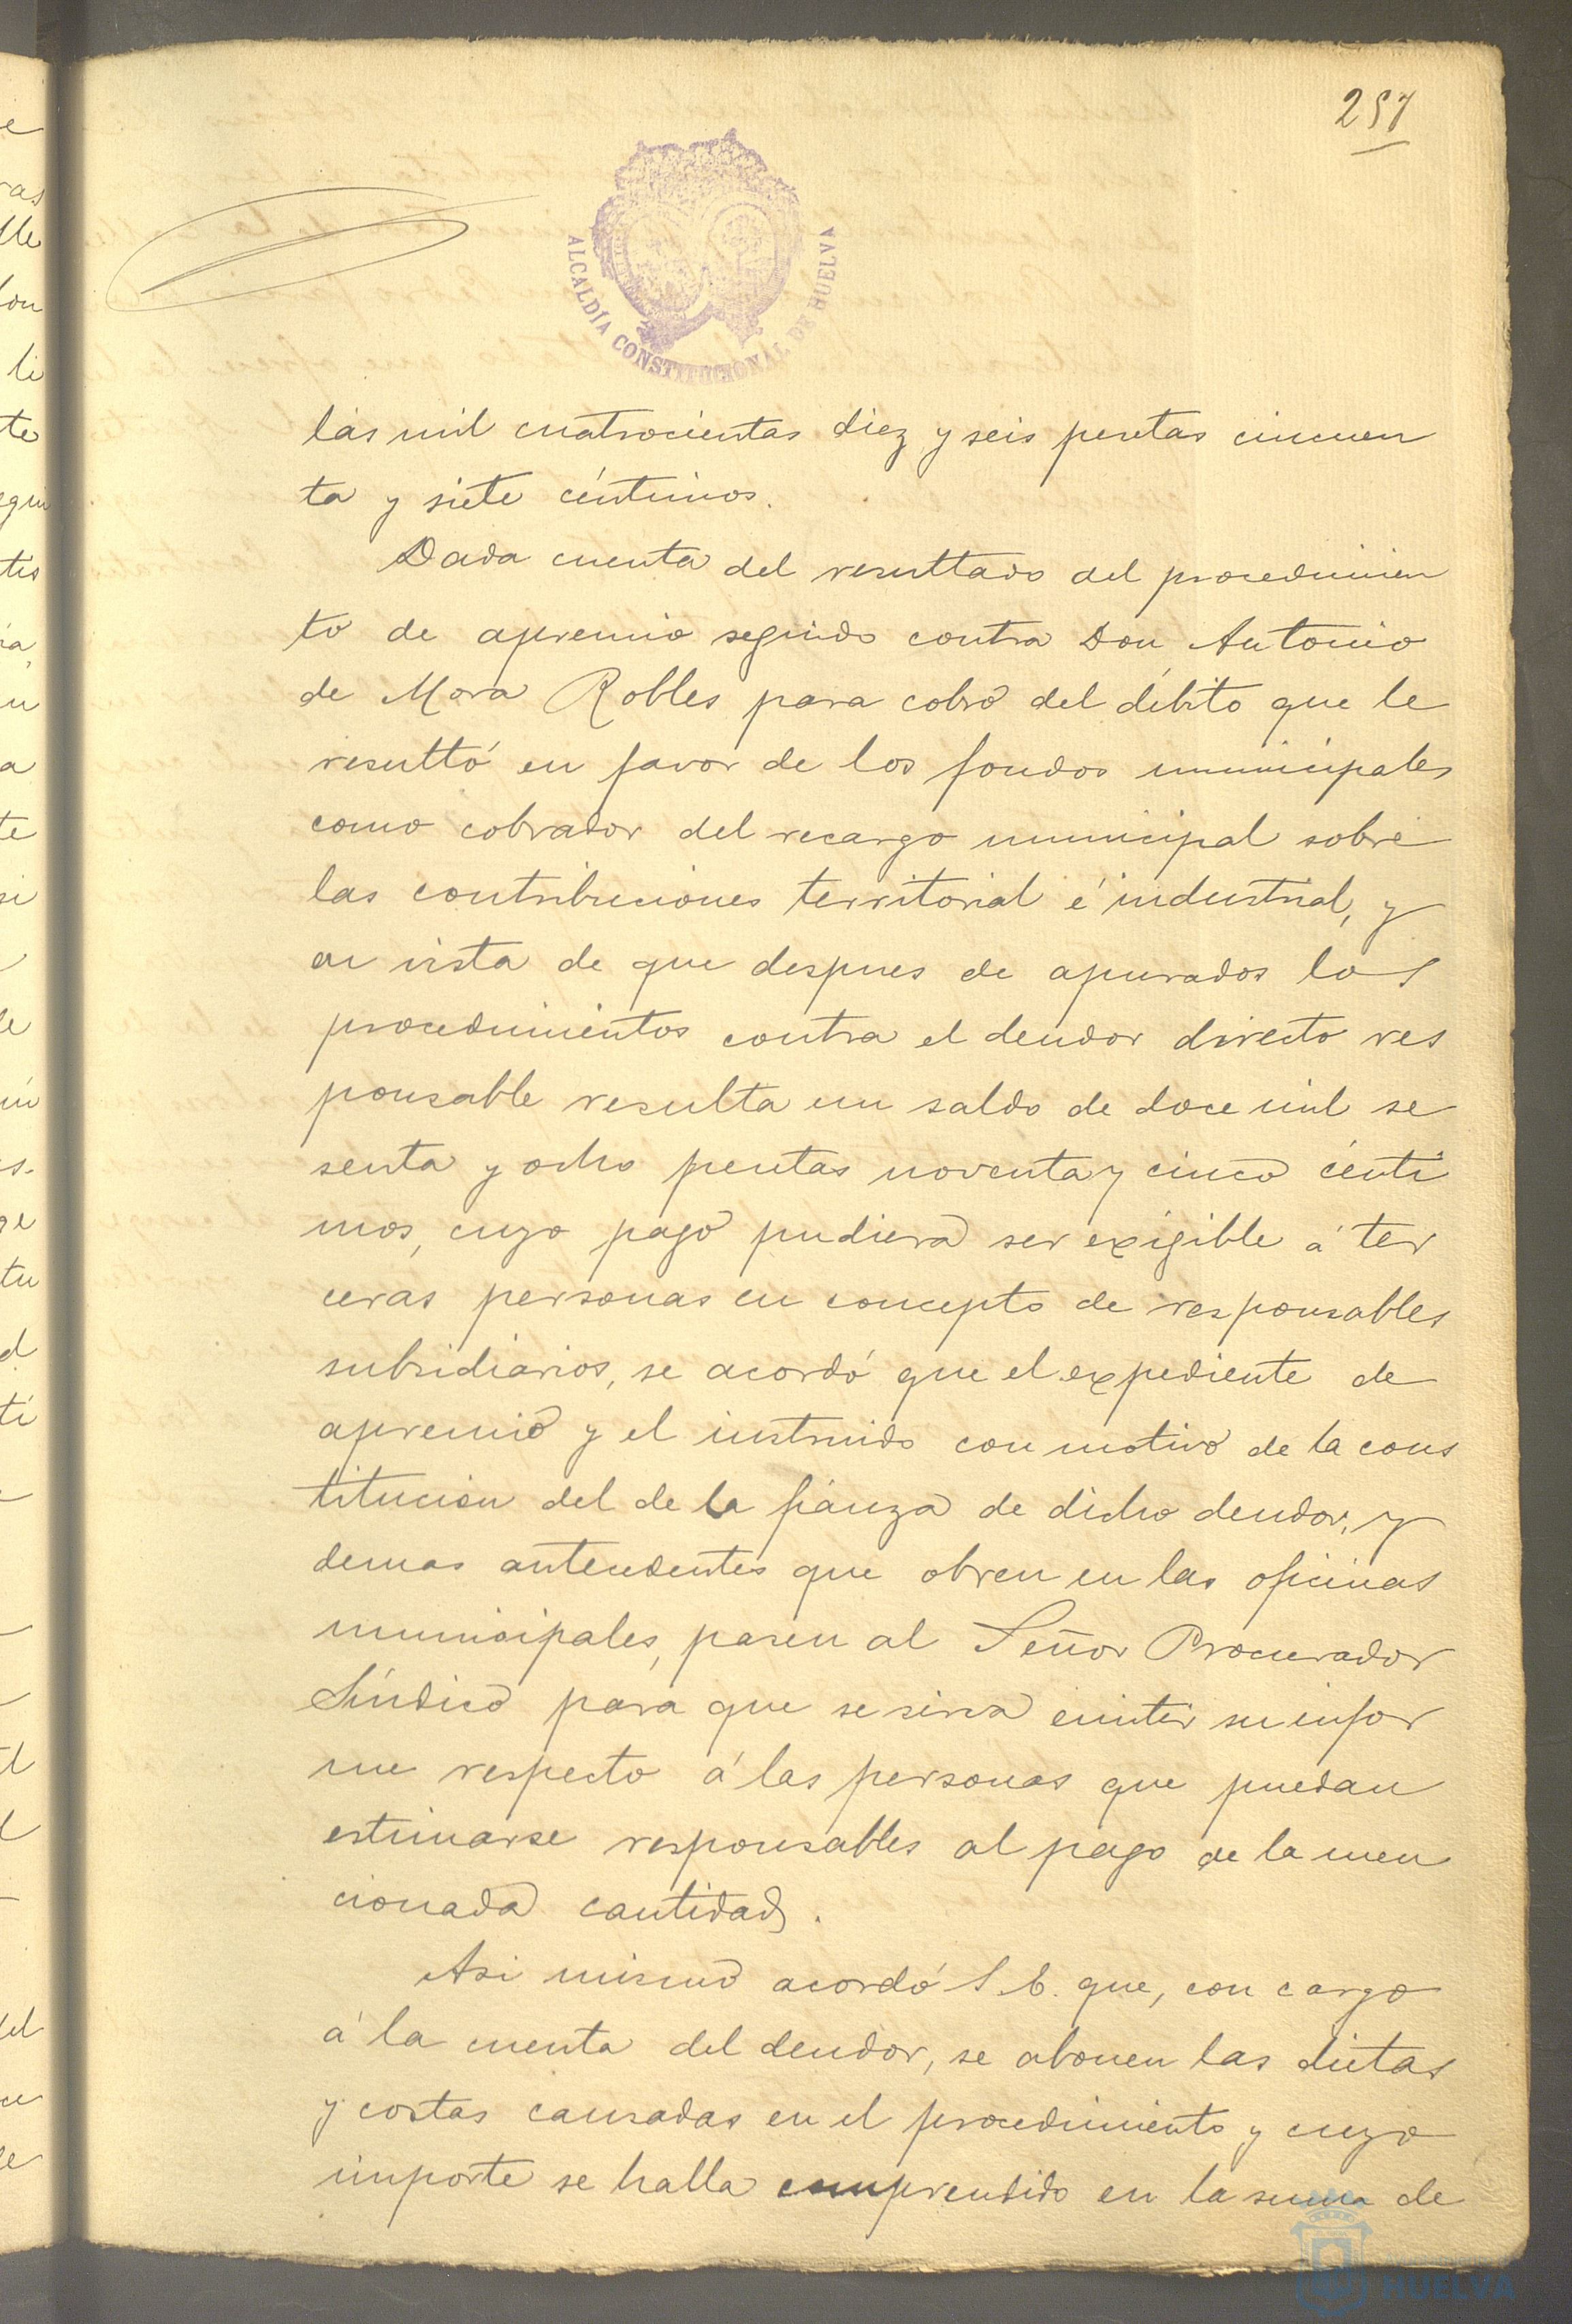 257
ALCALDÍA CONSTITUCIONAL DE HUELVA
las mil cuatrocientas diez y seis pesetas cincuen
ta y siete céntimos.
Dada cuenta del resultado del procedimien
to de apremio seguido contra Don Antonio
de Mora Robles para cobro del débito que le
resultó en favor de los fondos municipales
como cobrador del recargo municipal sobre
las contribuciones territorial é industrial, y
en vista de que despues de apurados los
procedimientos contra el deudor directo res
ponsable resulta un saldo de doce mil se
senta y ocho pesetas noventa y cinco cénti
mos, cuyo pago pudiera ser exigible á ter
ceras personas en concepto de responsables
subsidiarios, se acordó que el expediente de
apremio y el instruido con motivo de la cons
titucion del de la fianza de dicho deudor, y
demas antecedentes que obren en las oficinas
municipales, pasen al Señor Procurador
Síndico para que se sirva emitir su infor
me respecto á las personas que puedan
estimarse responsables al pago de la men
cionada cantidad.
Asi mismo acordó S. E. que, con cargo
á la cuenta del deudor, se abonen las dietas
y costas causadas en el procedimiento y cuyo
importe se halla comprendido en la suma de
HUELVA